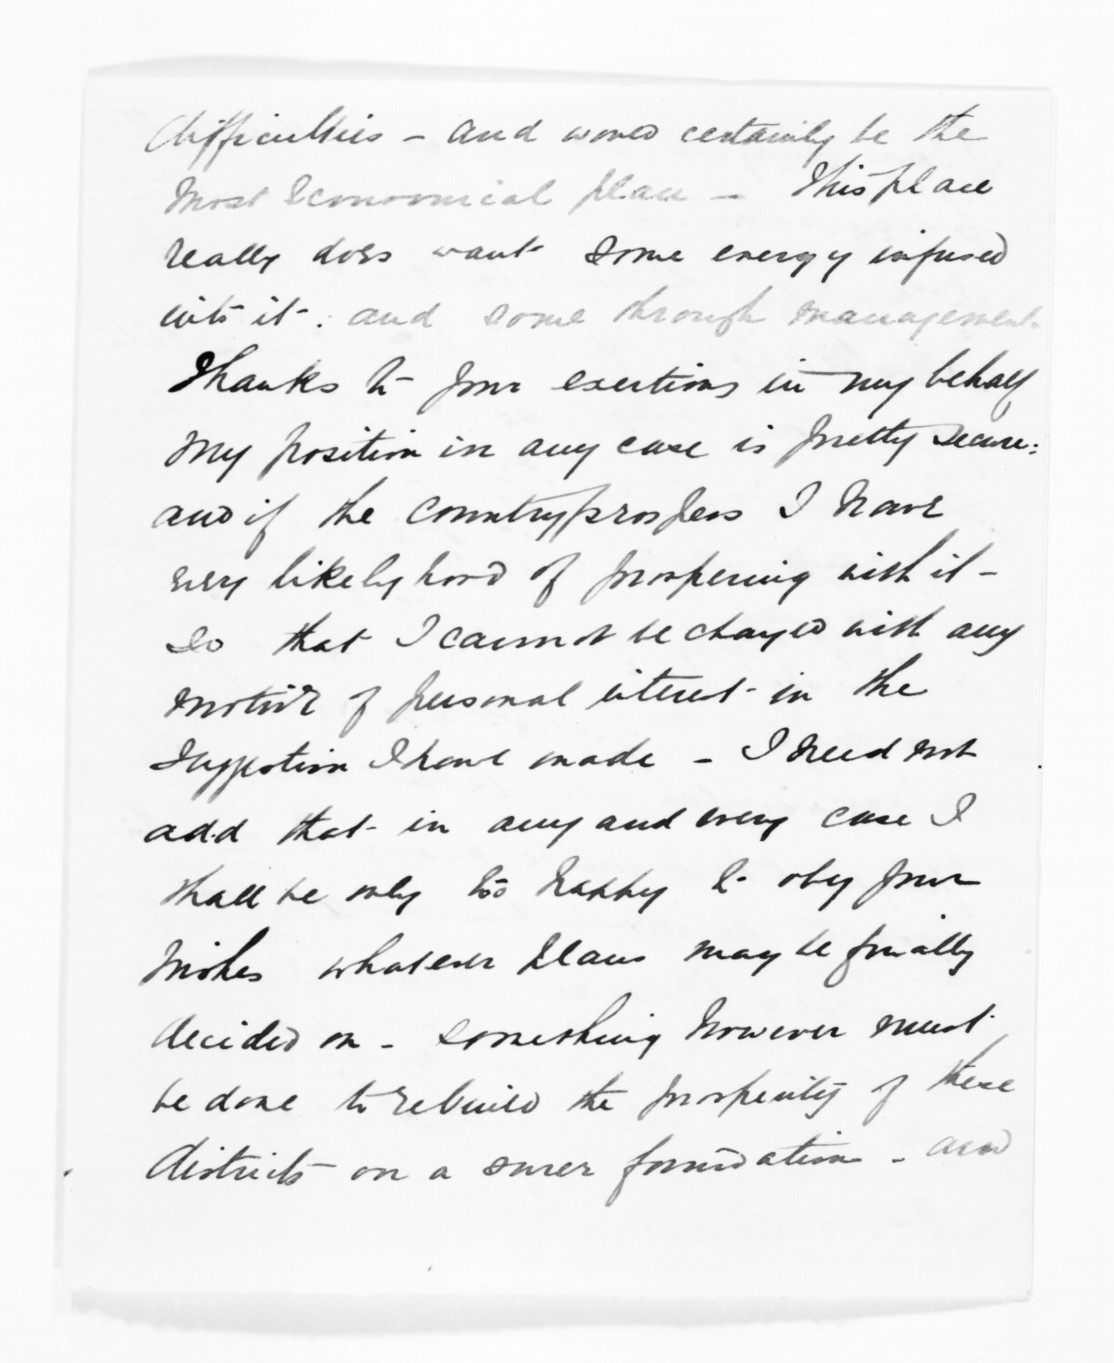 difficulties - and would certainly be the
most economical plan - This place
really does want some energy infused
into it. and some through management.
Thanks to your exertions in my behalf
my position in any case is pretty secure:
and if the country prospers I have
every likelyhood of prospering with it -
so that I cannot be charged with any
motive of personal interest in the
suggestion I have made - I need not
add that in any and every case I
shall be only too happy to obey your
wishes whatever plans may be finally
decided on - something however must
be done to rebuild the prosperity of these
districts on a surer foundation - and